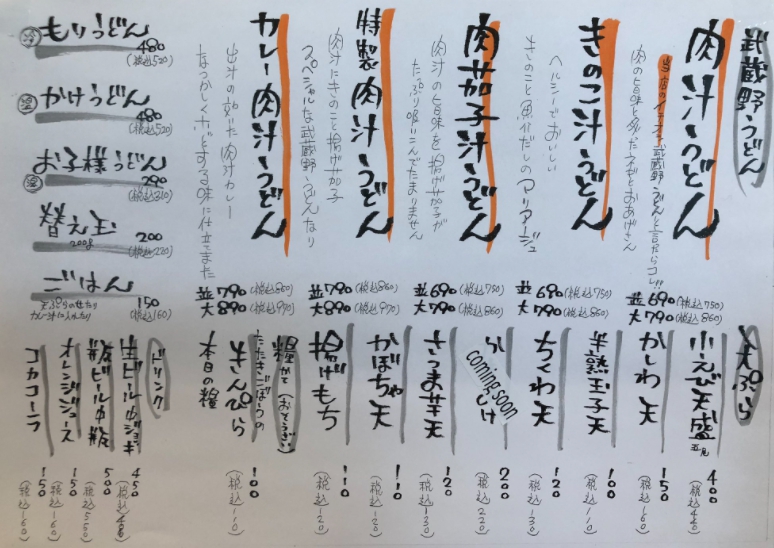 武蔵野うどん
肉汁うどん
当店のイチオシ 武蔵野うどんと言ったらコレ!!
肉の旨味と多めネギとおあげさん
並 690 (税込750)
大 790 (税込860)
きのこ汁うどん
ヘルシーでおいしい
きのこと魚介だしのマリアージュ
並 690 (税込750)
大 790 (税込860)
肉茄子汁うどん
肉汁の旨味を揚げ茄子が
たっぷり吸いこんでたまりません
並 690 (税込750)
大 790 (税込860)
特製肉汁うどん
肉汁にきのこと揚げ茄子
スペシャルな武蔵野うどんなり
並 790 (税込860)
大 890 (税込970)
カレー肉汁うどん
出汁の効いた肉汁カレー
なつかしくホッとする味に仕立てました
並 790 (税込860)
大 890 (税込970)
冷 もりうどん
480
(税込520)
温 かけうどん
480
(税込520)
温 お子様うどん
290
(税込310)
替え玉
200g
200
(税込220)
ごはん
天ぷらのせたり
カレー汁に入れたり
150
(税込160)
天ぷら
小えび天盛 五尾 400 (税込440)
かしわ天 150 (税込160)
半熟玉子天 100 (税込110)
ちくわ天 120 (税込130)
coming soon
200 (税込220)
さつま芋天 120 (税込130)
かぼちゃ天 110 (税込120)
揚げもち 110 (税込120)
糧かて(おそうざい)
たたきごぼうの
きんぴら 100 (税込110)
本日の糧
ドリンク
生ビール中ジョッキ 450 (税込480)
瓶ビール中瓶 500 (税込500)
オレンジジュース 150 (税込160)
コカコーラ 150 (税込160)